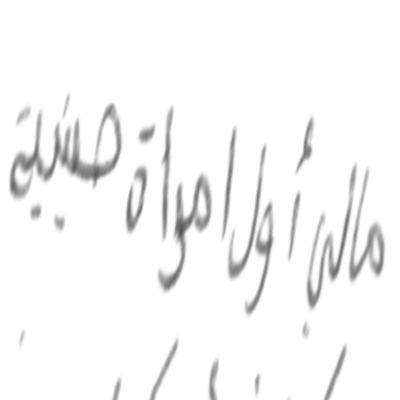 مالي أول امرأة صينية